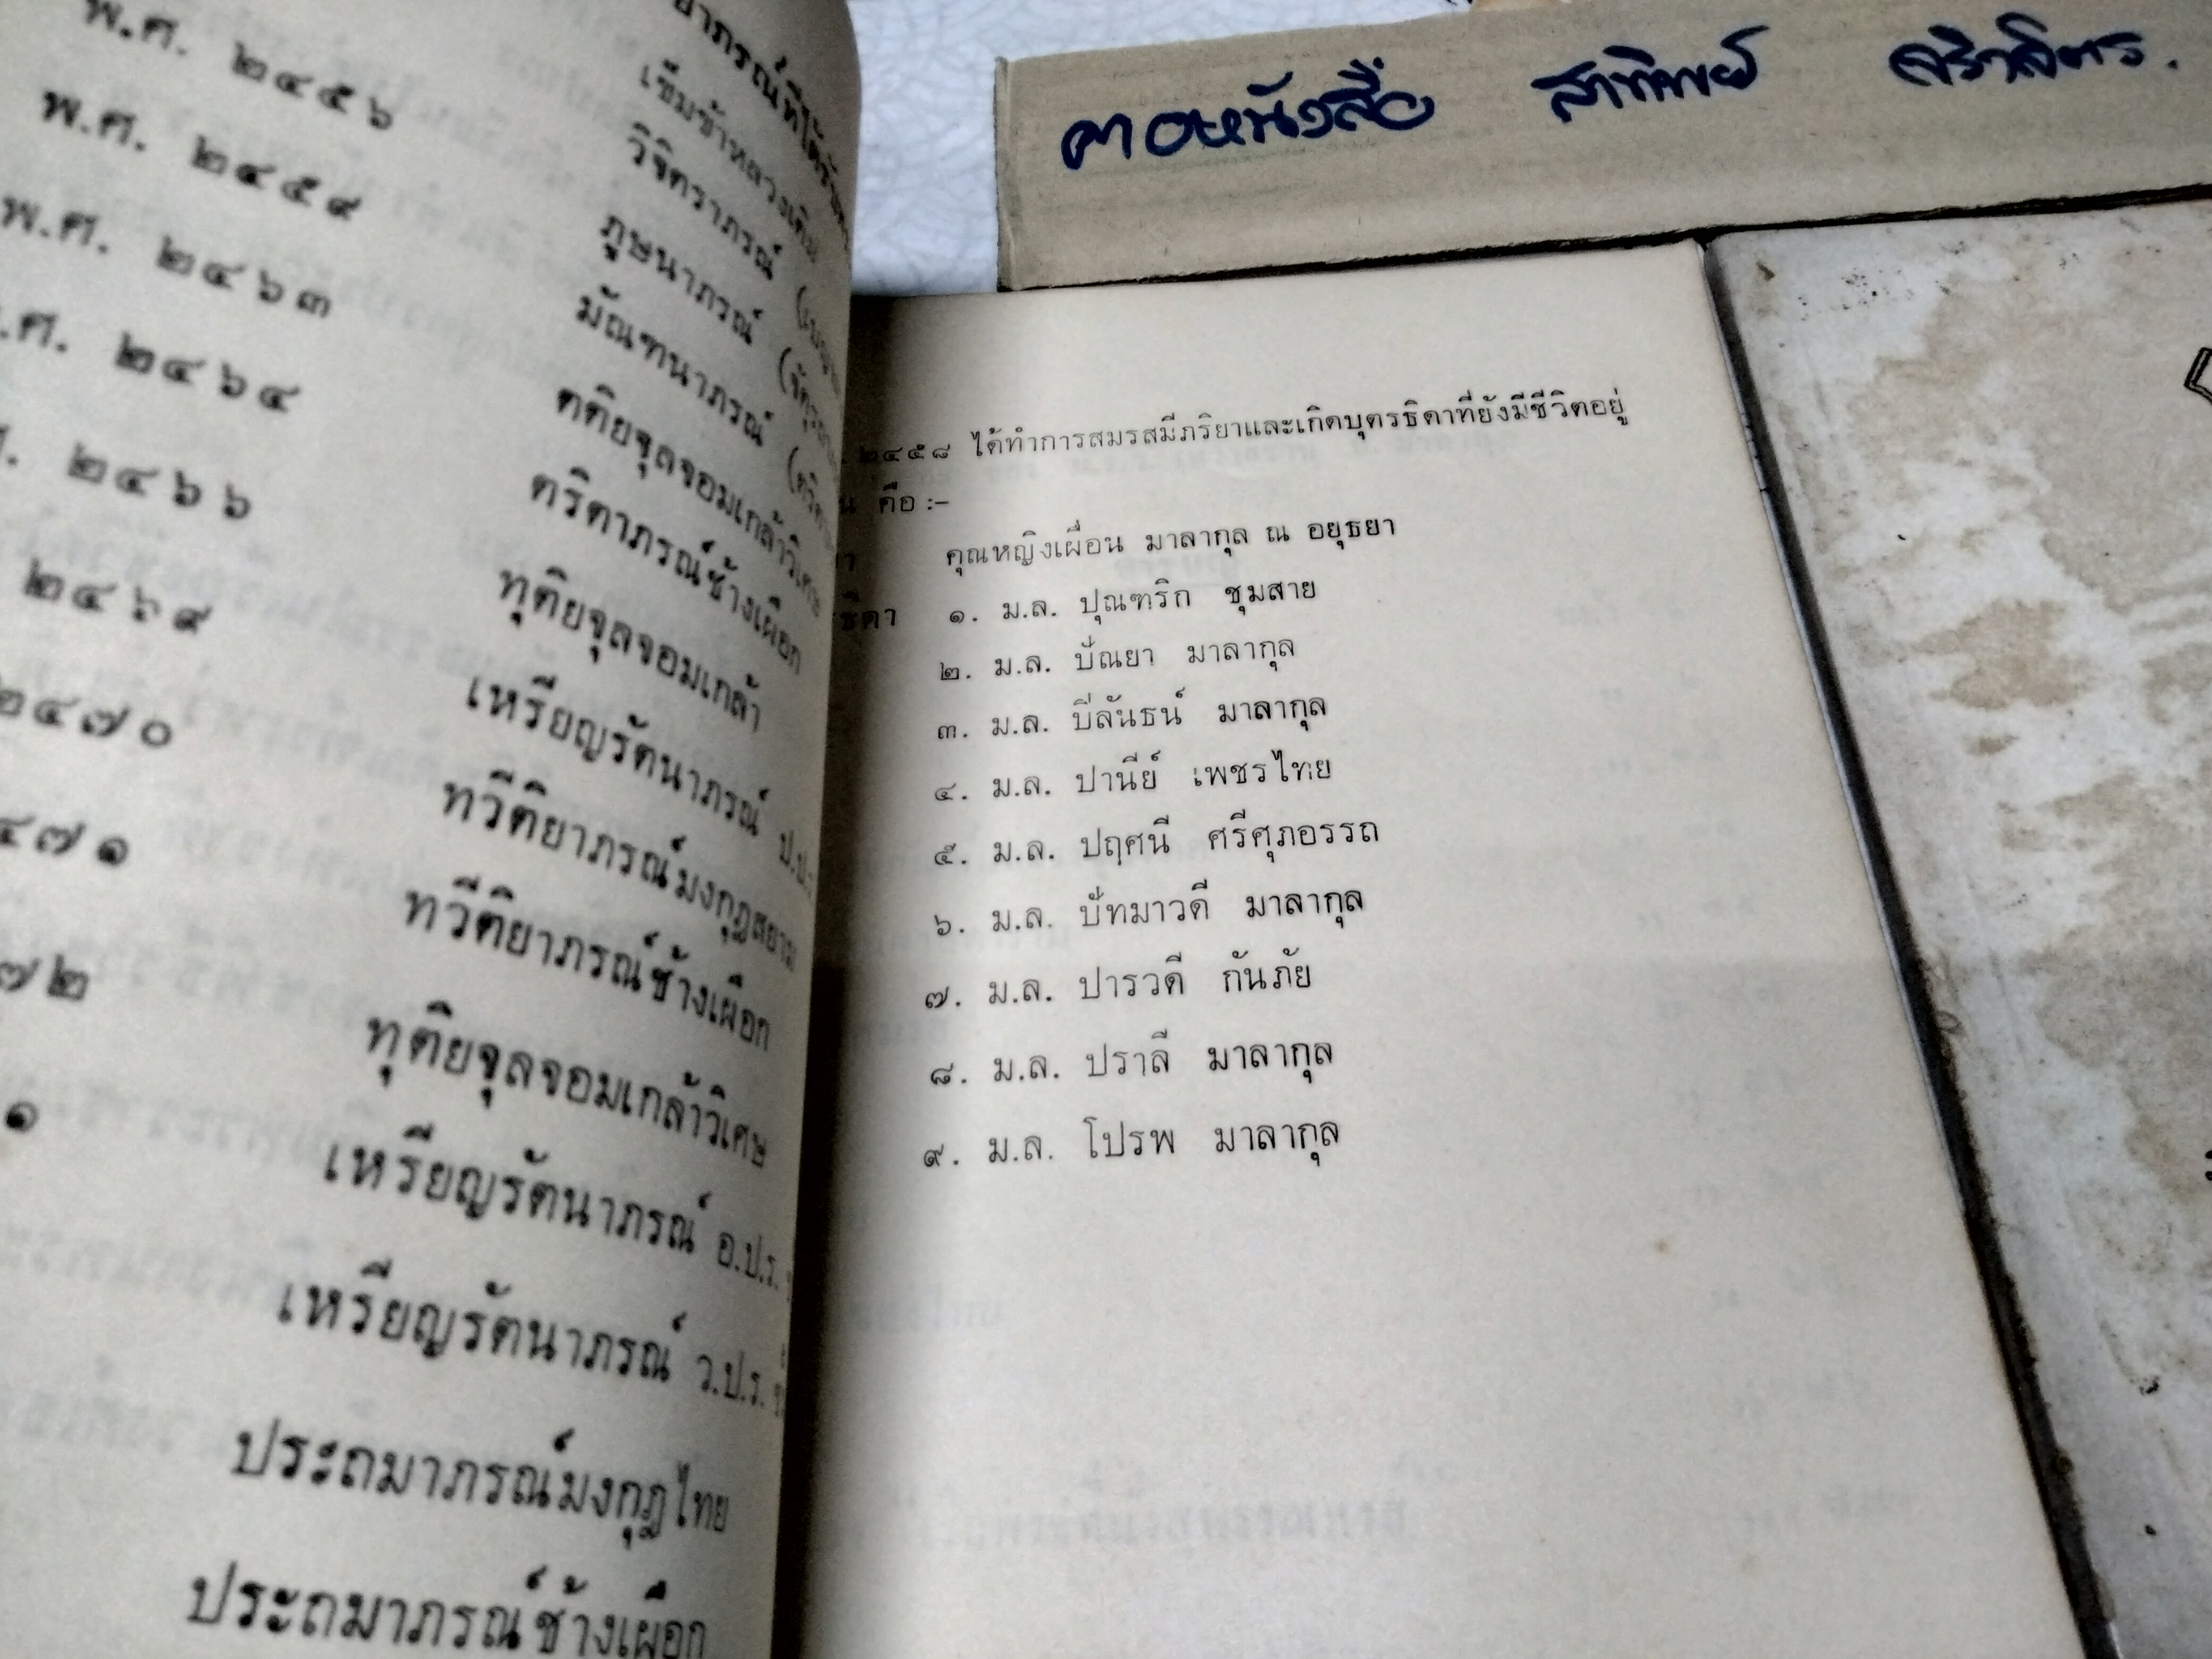 คอหนังสือ สาทิพย์
พ.ศ. ๒๔๕๖
พ.ศ. ๒๔๕๙
พ.ศ. ๒๔๖๓
.ศ. ๒๔๖๔
. ๒๔๖๖
๒๔๖๙
๒๔๗๐
๔๗๑
๗๒
๑
เข็มข้าหลวงเดิม
วิจิตราภรณ์
ภูษนาภรณ์
มัณฑนาภรณ์
ตติยจุลจอมเกล้าวิเศษ
ตริตาภรณ์ช้างเผือก
ทุติยจุลจอมเกล้า
เหรียญรัตนาภรณ์ ป.ป.
ทวีติยาภรณ์มงกุฎสยาม
ทวีติยาภรณ์ช้างเผือก
ทุติยจุลจอมเกล้าวิเศษ
เหรียญรัตนาภรณ์ อ.ป.ร.
เหรียญรัตนาภรณ์ ว.ป.ร.
ประถมาภรณ์มงกุฎไทย
ประถมาภรณ์ช้างเผือก
. ๒๔๕๘ ได้ทำการสมรสมีภริยาและเกิดบุตรธิดาที่ยังมีชีวิตอยู่
น คือ :–
า คุณหญิงเผื่อน มาลากุล ณ อยุธยา
ธิดา ๑. ม.ล. ปุณฑริก ชุมสาย
๒. ม.ล. ปัณยา มาลากุล
๓. ม.ล. ปิลันธน์ มาลากุล
๔. ม.ล. ปานีย์ เพชรไทย
๕. ม.ล. ปฤศนี ศรีศุภอรรถ
๖. ม.ล. ปัทมาวดี มาลากุล
๗. ม.ล. ปารวดี กันภัย
๘. ม.ล. ปราลี มาลากุล
๙. ม.ล. โปรพ มาลากุล